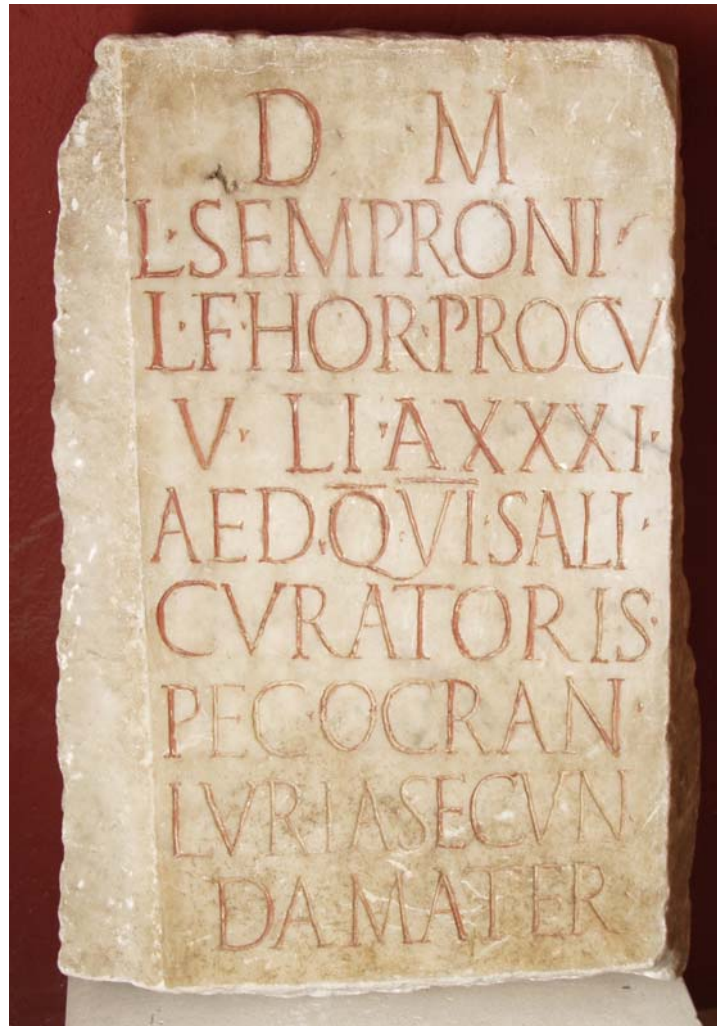 D M
L·SEMPRONI·
L·F·HOR·PROCV
V· LI·AXXXI·
AED·QVISALI·
CVRATORIS·
PEC·OCRAN·
LVRIASECVN
DAMATER